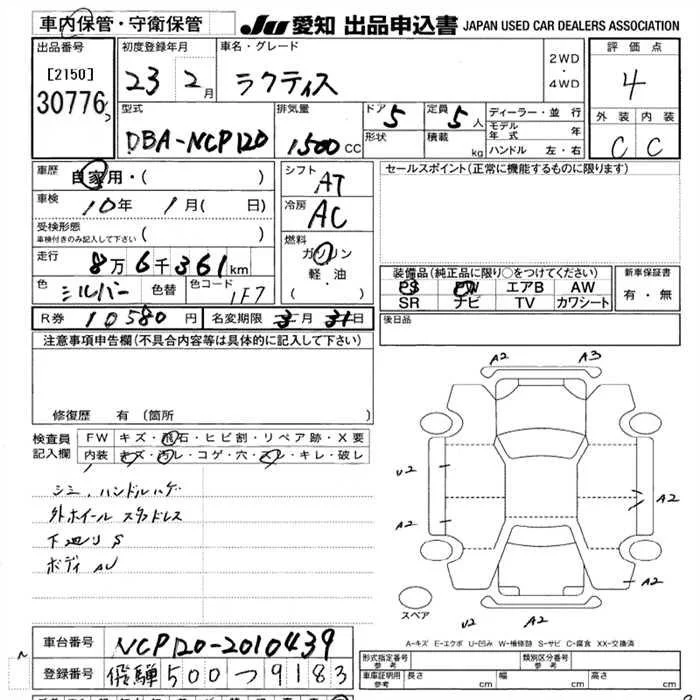 車内保管・守衛保管 JU 愛知 出品申込書 JAPAN USED CAR DEALERS ASSOCIATION
出品番号 [2150] 30776
初度登録年月 23 2月
車名・グレード ラクティス
2WD・4WD
評価点 4
外装 内装
C C
型式 DBA-NCP120
排気量 1500CC
ドア 5
形状
定員 5人
積載 kg
ディーラー・並行
モデル年式 年
ハンドル 左・右
車歴 自家用・( )
車検 10年 1月( 日)
受検形態
車検付きのみ記入して下さい ( )
走行 8万6千361km
色 シルバー 色替 色コード 1F7
シフト AT
冷房 AC
燃料 ガソリン
軽・油
・( )
セールスポイント(正常に機能するものに限ります)
装備品(純正品に限り○をつけてください)
PS PW エアB AW
SR ナビ TV カワシート
新車保証書
有・無
R券 10580円 名変期限 3月31日
後日品
注意事項申告欄(不具合内容等は具体的に記入して下さい)
修復歴 有(箇所
検査員記入欄
FW キズ・飛石・ヒビ割・リペア跡・X要
内装 キズ・汚レ・コゲ・穴・スレ・キレ・破レ
シミ、ハンドルハゲ
外ホイール スタッドレス
下廻りS
ボディAU
A2 A3
U2 A2
A2
A2
U2 A2
スペア
A-キズ E-エクボ U-凹み W-補修跡 S-サビ C-腐食 XX-交換済
車台番号 NCP120-2010439
登録番号 飛騨500つ9183
形式指定番号 参考
類別区分番号 参考
車庫証明用 参考 長さ cm 幅 cm 高さ cm